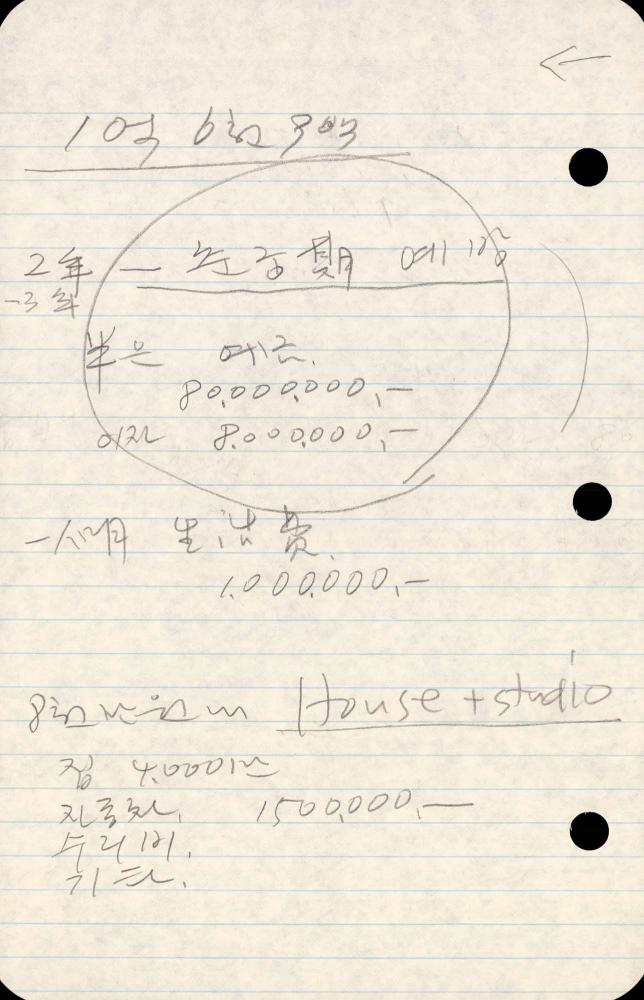 1억 6천 3백
2年 — 준중期 예
-3年
半은 예금.
80,000,000,—
이자 8,000,000,—
一個月 生活費.
1,000,000,—
8천만원 House + studio
집 4,000만
자동차, 1500,000,—
수리비,
기타.